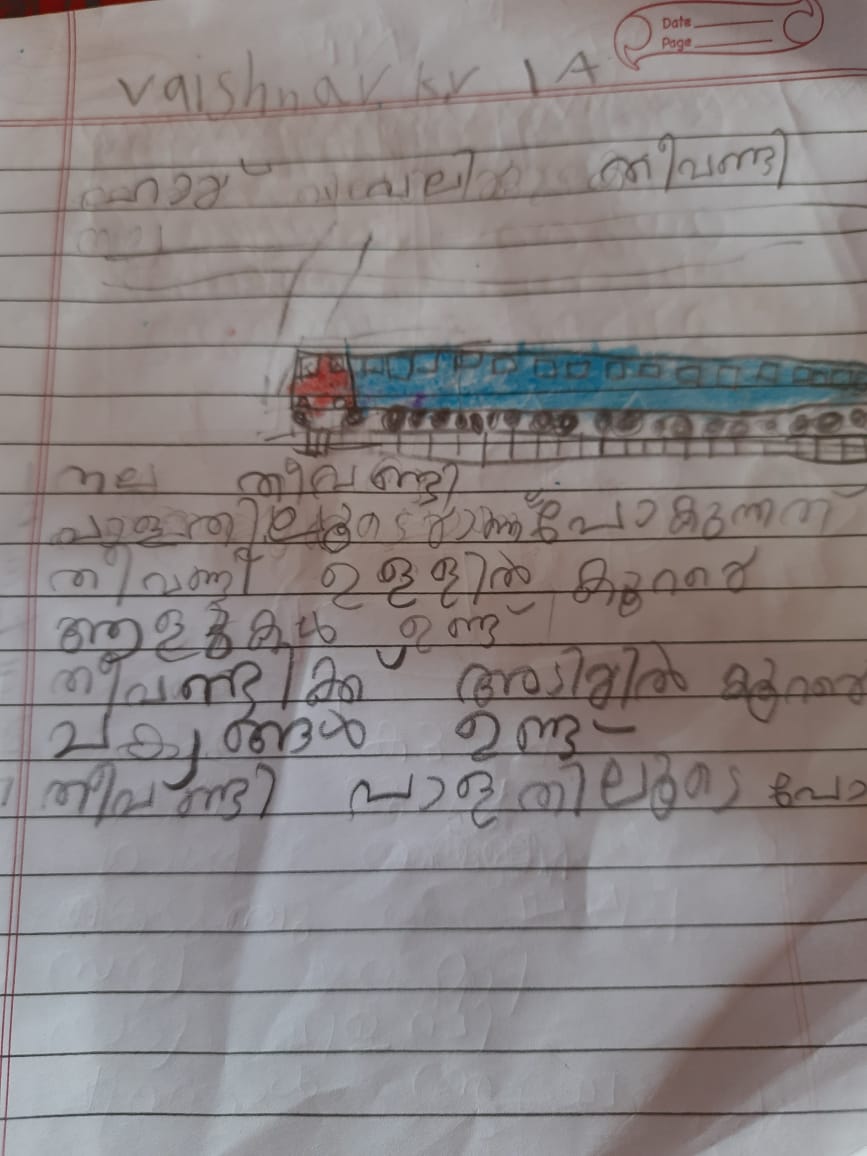 Date
Page
vaishnav kv 1 A
തീവണ്ടി
നല്ല
നല്ല തീവണ്ടി
പാളത്തിലൂടെയാണ് പോകുന്നത്
തീവണ്ടി ഉള്ളിൽ കുറരെ
ആളുകൾ ഉണ്ട്
തീവണ്ടിക്ക് അടിയിൽ കുറരെ
ചക്രങ്ങൾ ഉണ്ട്
തീവണ്ടി പാളതിലൂടെ പോ